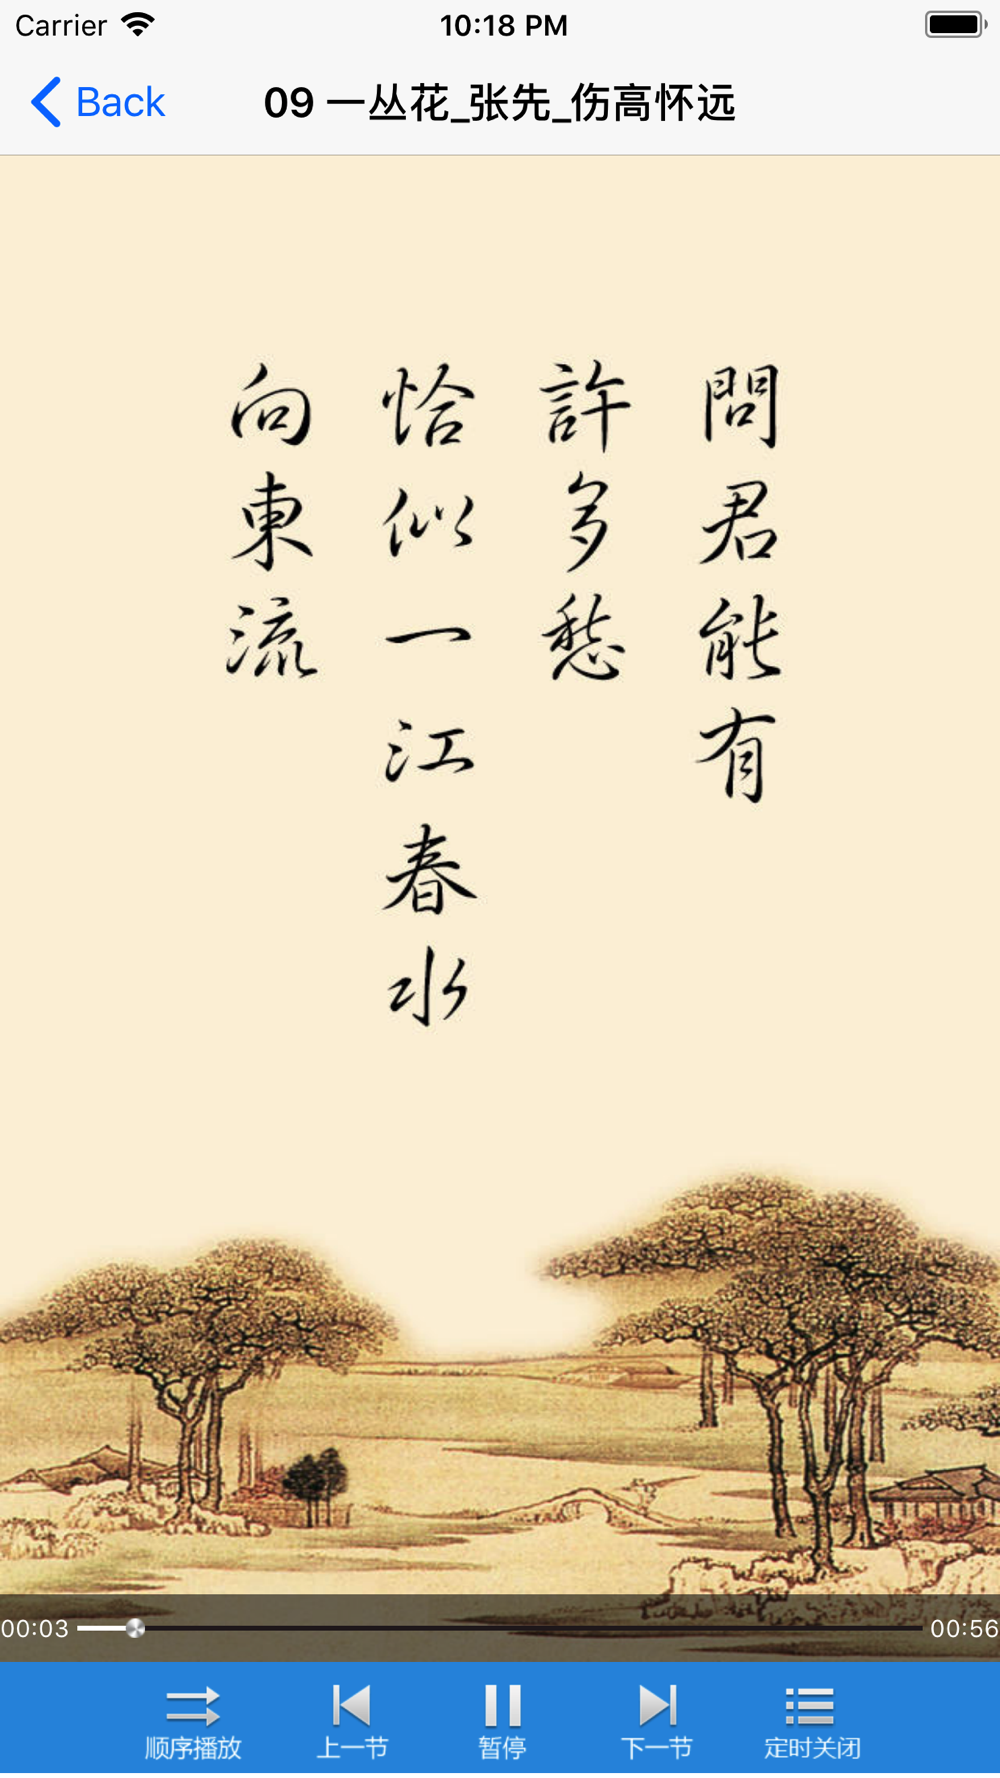 Carrier 10:18 PM
Back 09 一丛花_张先_伤高怀远
問君能有
許多愁
恰似一江春水
向東流
00:03 00:56
顺序播放 上一节 暂停 下一节 定时关闭